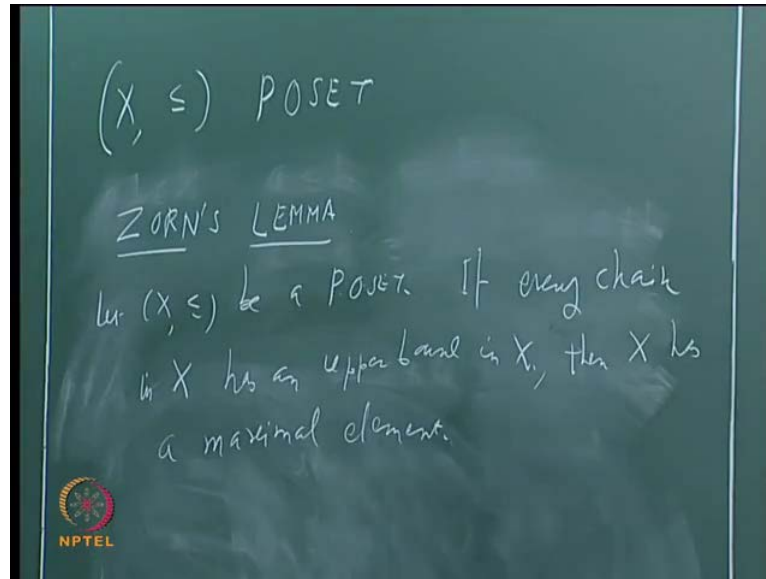 (X, ≤) POSET
ZORN'S LEMMA
Let (X, ≤) be a POSET. If every chain
in X has an upper bound in X, then X has
a maximal element.
NPTEL